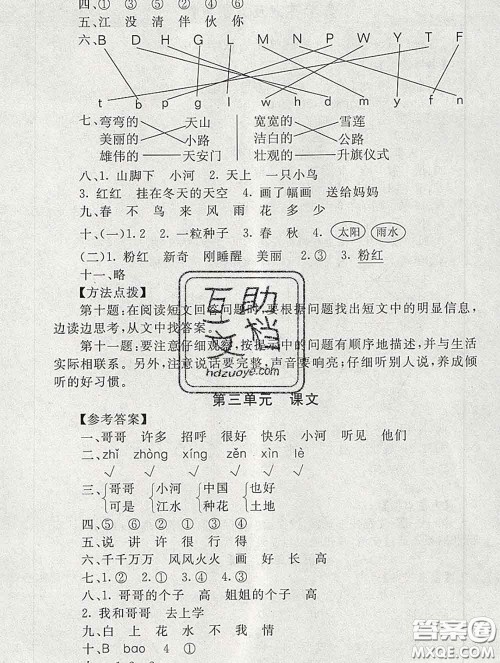 四、① ⑤ ③ ② ④ ⑥
五、江 没 清 伴 伙 你
六、 B D H G L M N P Y T F
t b p g l w h d m y f n
七、弯弯的 天山 宽宽的 雪莲
美丽的 小路 洁白的 公路
雄伟的 天安门 壮观的 升旗仪式
八、1. 山脚下 小河 2. 天上 一只小鸟
3. 红红 挂在冬天的天空 4. 画了幅画 送给妈妈
九、春 不 鸟 来 风 雨 花 多 少
十、(一)1. 2 2. 一粒种子 3. 春 秋 4. 太阳 雨水
(二)1. 粉红 新奇 刚睡醒 美丽 2. ③ 3. 粉红
十一、略
【方法点拨】
第十题:在阅读短文回答问题时,要根据问题找出短文中的明显信息,
边读边思考,从文中找答案。
第十一题:要注意仔细观察,按提示中的问题有顺序地描述,并与生活
实际相联系。另外,说话要完整,声音要响亮;仔细听别人说,养成倾
听的好习惯。
互助文档
hdzuoye.com
第三单元 课文
【参考答案】
一、哥哥 许多 招呼 很好 快乐 小河 听见 他们
二、zhǐ zhòng xíng zěn xìn lè
√ √ √ √ √ √
三、哥哥 小河 中国 也好
可是 江水 种花 土地
四、⑤ ⑥ ② ① ③ ④
五、说 讲 许 很 行 得
六、千千万万 风风火火 画 好 长 高
七、1. ② 2. ① 3. ④ 4. ③
八、1. 哥哥的个子 高 姐姐的个子 高
2. 我和哥哥 去上学
九、白 上 花 水 不 我 情
十、B bao 4 ①
答案圈
MXQE.COM